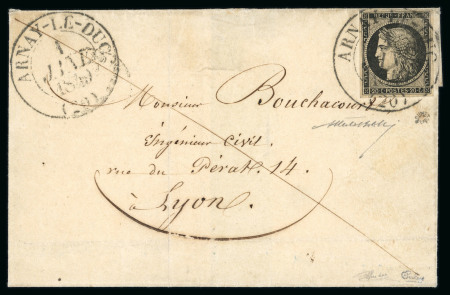 ARNAY-LE-DUC
1
JANV.
1849
(20)
REPUB. FRANC.
20 C. POSTES 20 C.
ARNAY DUC
(20)
Monsieur Bouchacourt
Ingénieur Civil
rue du Pérat. 14.
à Lyon.